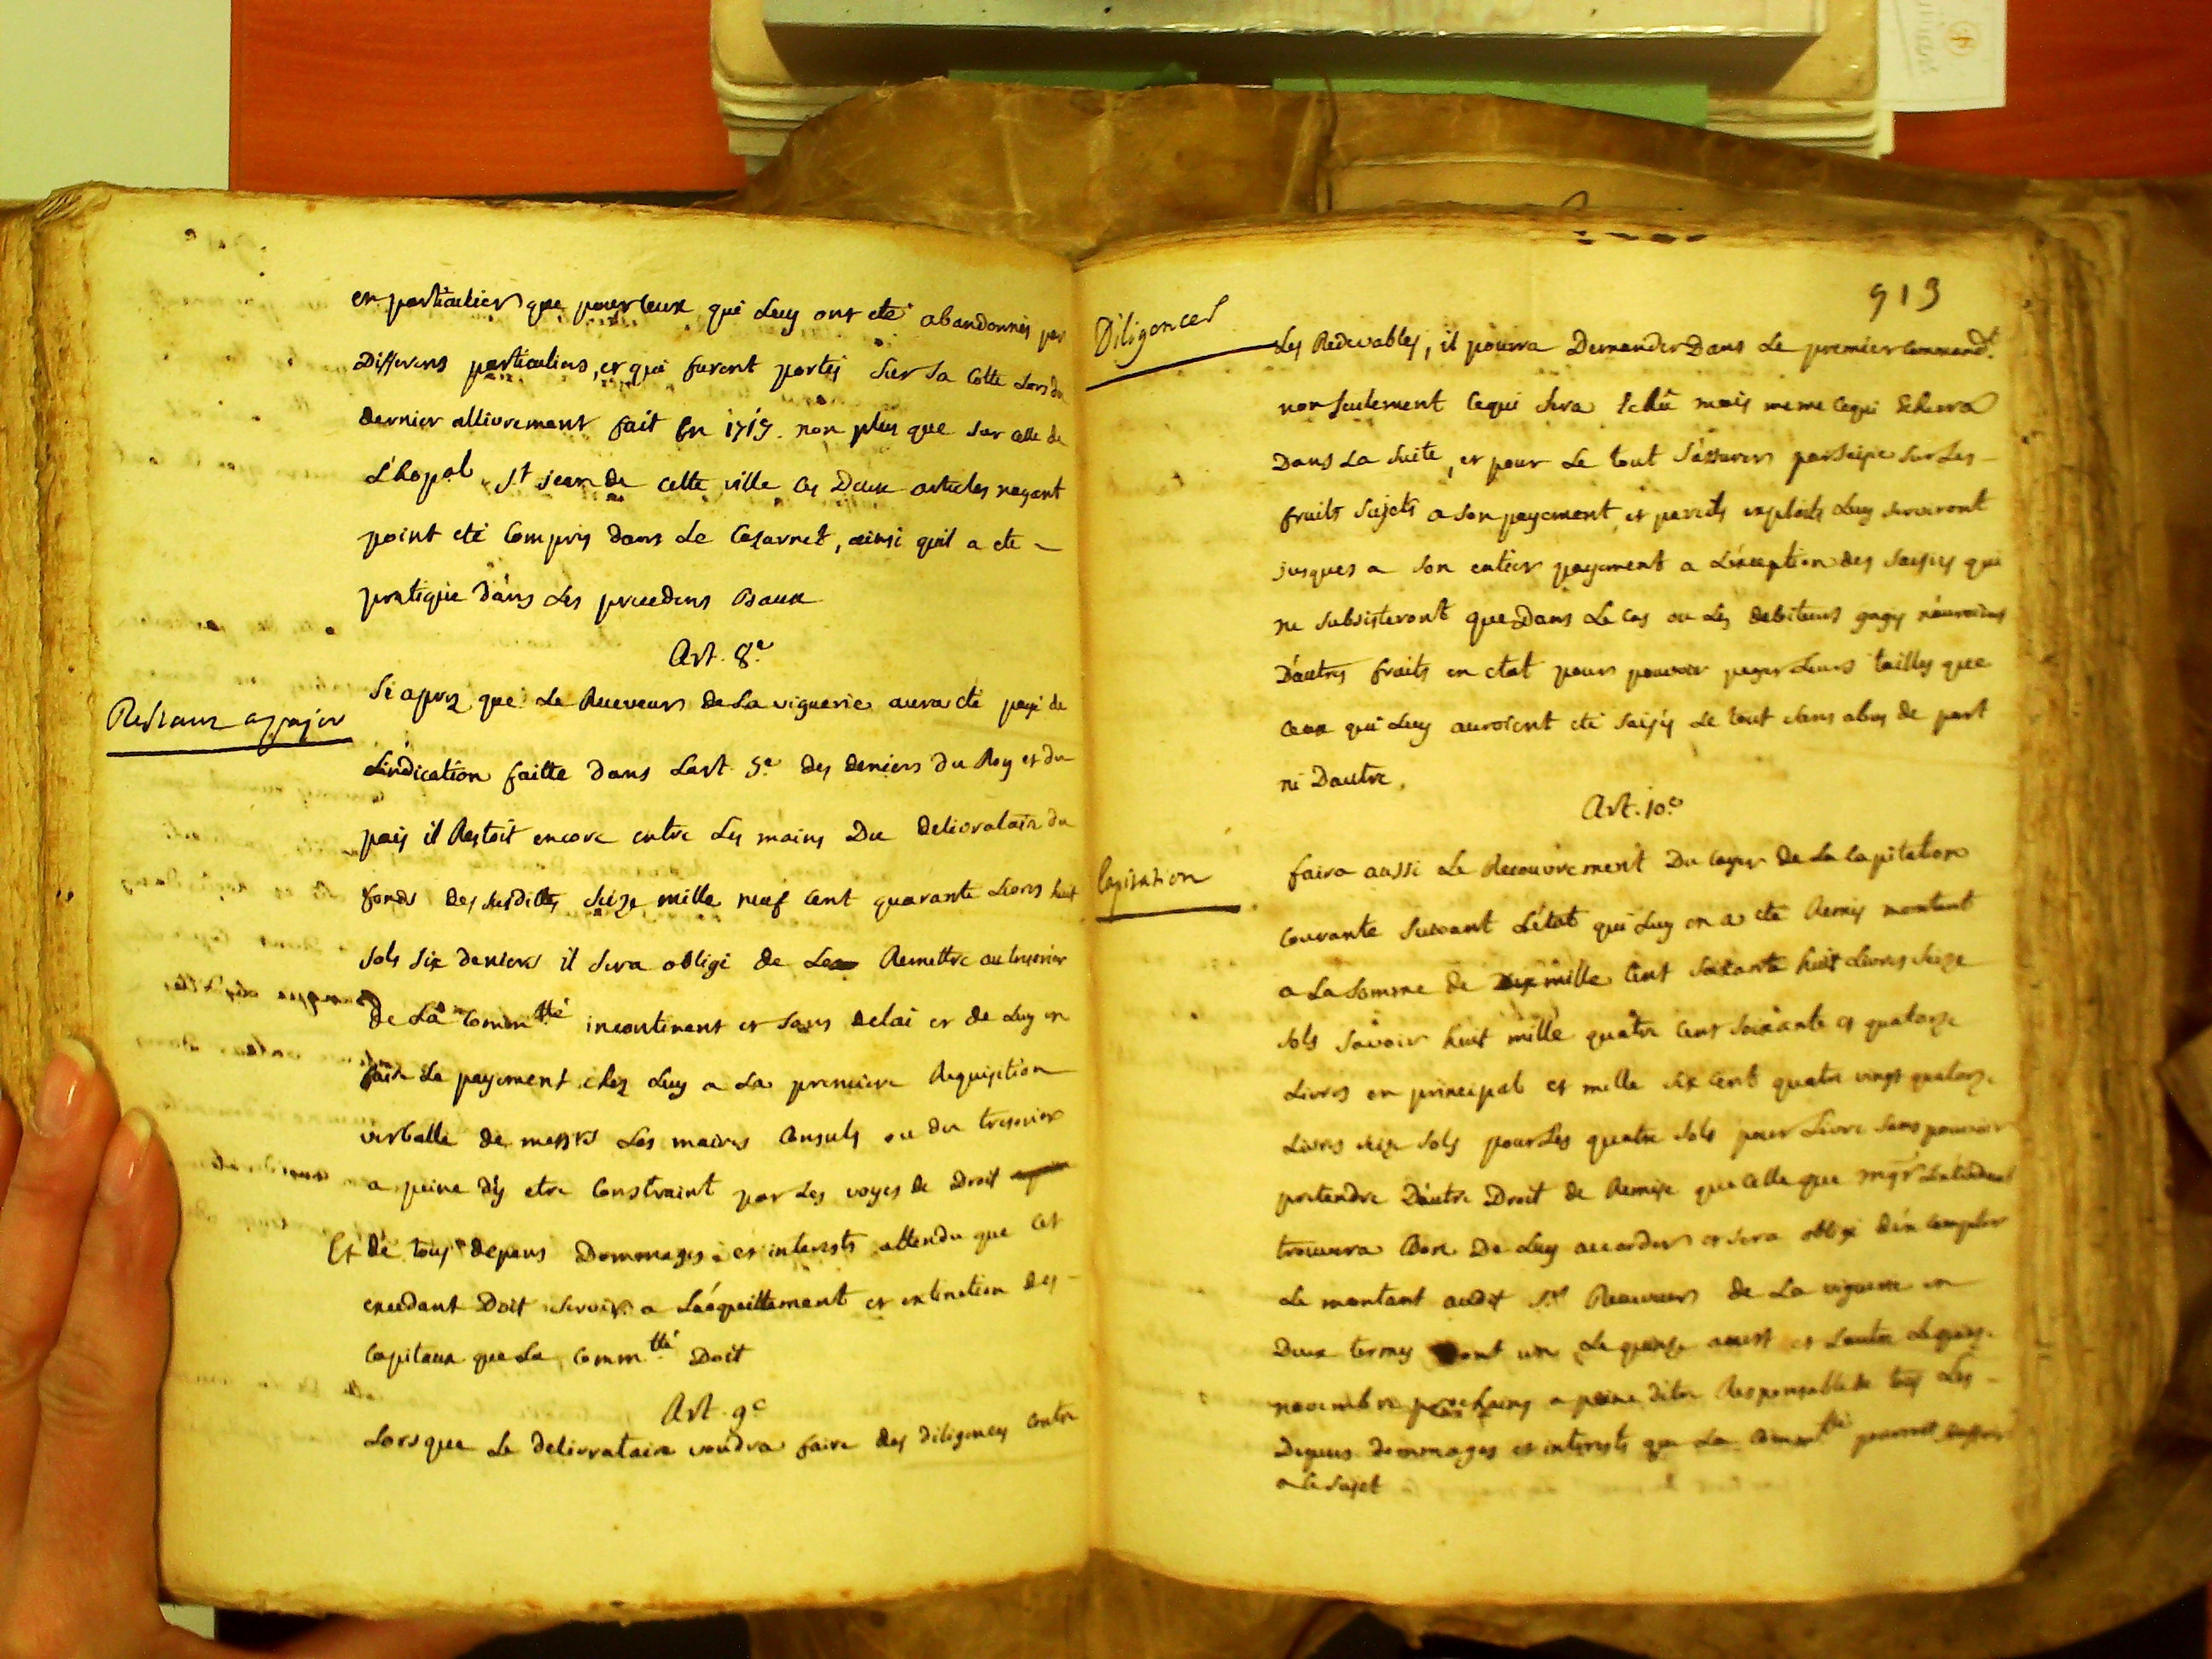 en particulier que pour ceux qui Luy ont eté abandonnés par
Differens particuliers, et qui furent portés sur sa Cotte Lors du
dernier allivrement fait En 1715. non plus que sur celle de
L'hopal St jean de cette ville Ces Deux articles nayant
point eté Compris dans Le Cazarnet, ainsi quil a ete
pratiqué dans Les precedens Baux
Art. 8e
Restans a payer
Si aprez que Le Receveur de La viguerie aura eté payé de
L'indication faitte dans Lart. 5e des deniers du Roy et du
païs il Restoit encore entre Les mains Du delivrataire du
fonds des susdittes Seize mille neuf Cent quarante Livres huit
sols six deniers il sera obligé de Remettre au tresorier
de La Commtté incontinent et sans delai et de Luy en
faire Le payement chez Luy a La premiere Requisition
verballe de messrs Les maires Consuls ou du tresorier
a peine d'y etre Constraint par Les voyes de Droit
Et de tous depens Dommages et interests attendu que Cet
excedant Doit servir a L'acquittement et extinction des
Capitaux que La Commtté Doit
Art. 9e
Lorsque Le delivrataire voudra faire des diligences Contre
913
Diligences
Les Redevables, il pourra Demander Dans Le premier Commandt
non seulement Cequi sera Echû mais meme Cequi Echerra
Dans La suite, et pour Le tout s'assurer par saisie sur Les
fruits sujets a son payement, et exploits Luy serviront
jusques a son entier payement a L'exeption des saisies qui
ne subsisteront que Dans Le Cas ou Les debiteurs gagés n'auroins
D'autres fruits en etat pour pouvoir payer Leurs tailles que
Ceux qui Luy auroient eté saisis Le tout sans abus de part
ni Dautre.
Art. 10e
Capitation
faira aussi Le Recouvrement Du Cayer de La Capitation
Courante suivant L'état qui Luy en a eté Remis montant
a La somme de Dix mille Cent soixante huit Livres seize
sols savoir huit mille quatre Cent soixante et quatorze
Livres en principal et mille six Cent quatre vingt quatorze
Livres seize sols pour Les quatre sols pour Livre sans pouvoir
pretendre D'autre Droit de Remise que Celle que mgr L'intendant
trouvera Bon De Luy accorder et sera obligé d'en Compter
Le montant audit Sr Receveur de La viguerie en
Deux termes Dont un Le quinze aoust et L'autre Le quinze
novembre prochains a peine d'etre Responsable de tous Les
Depens dommages et interests que La Commtté pourroit souffrir
a Ce sujet